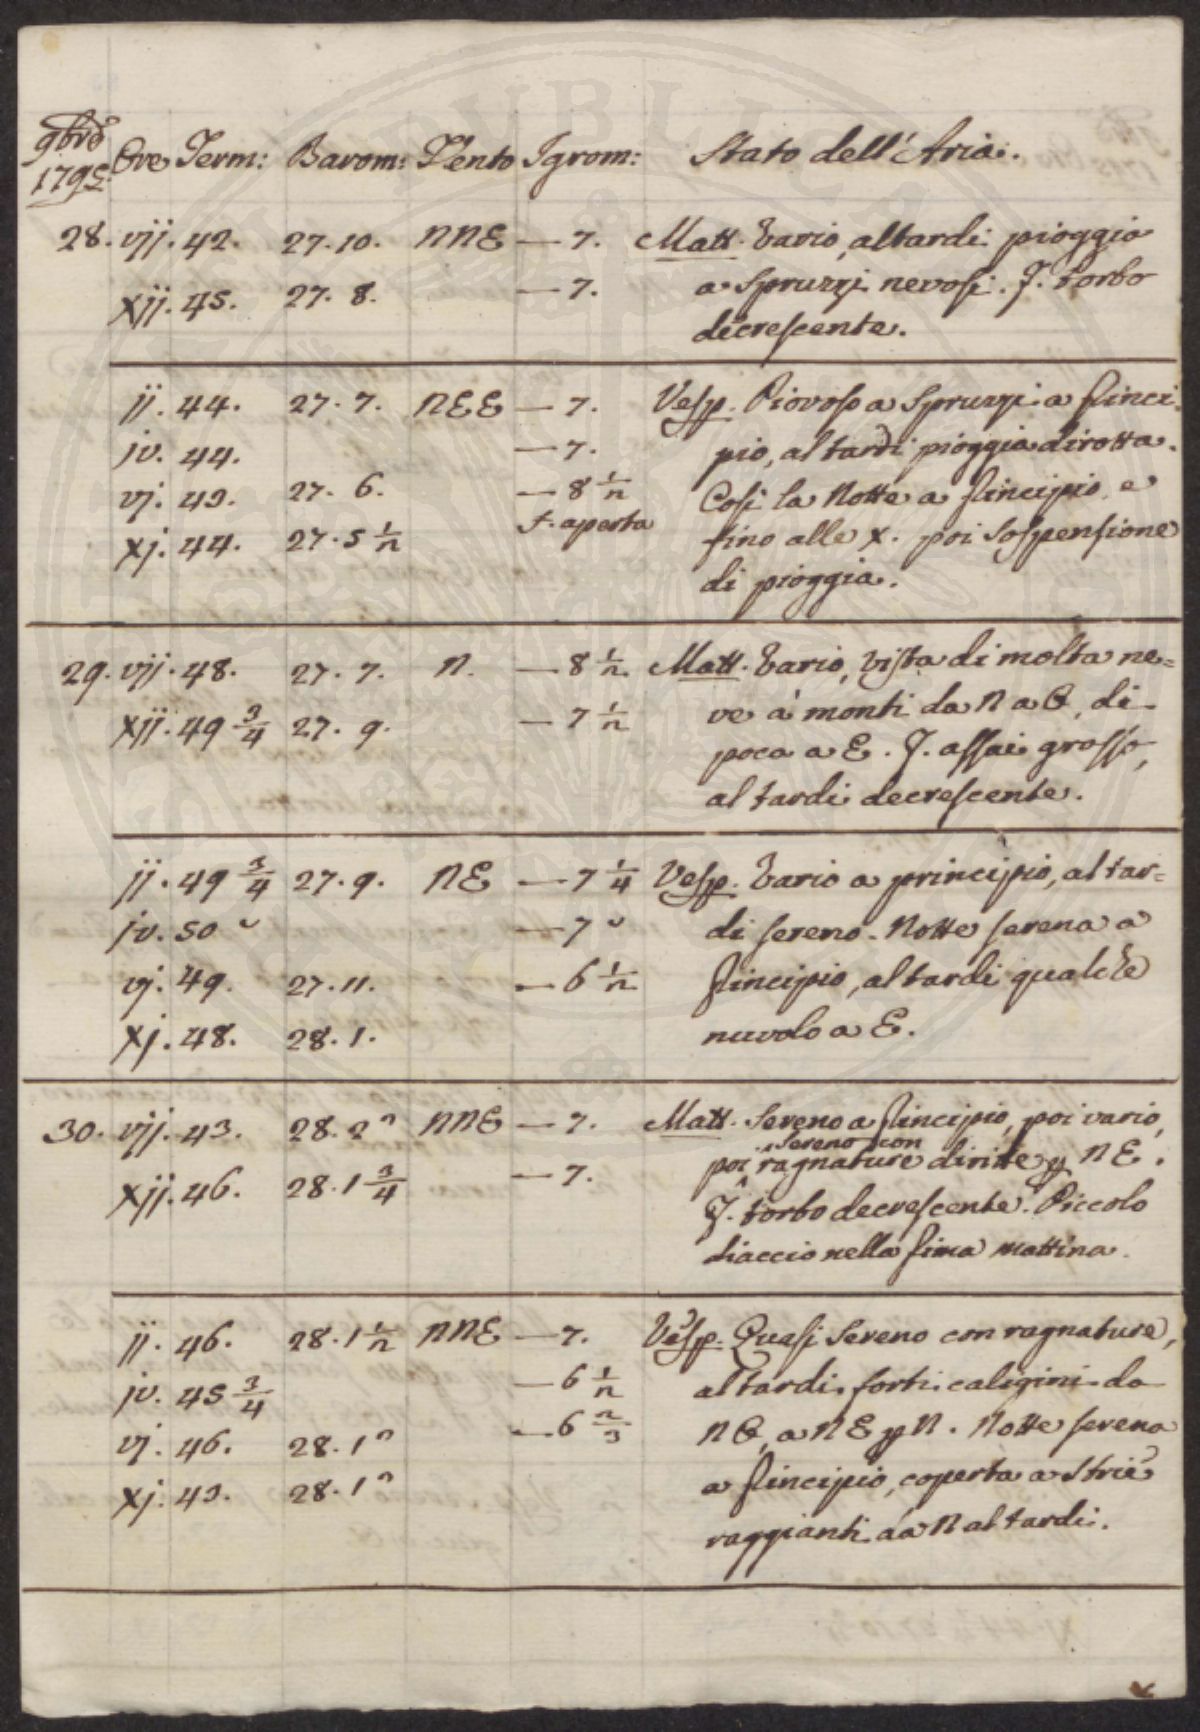 9brē 1795. Ore Term: Barom: Vento Igrom: Stato dell'Aria.
28. vij. 42. 27.10. NNE — 7. Matt. Vario, al tardi pioggia
xij. 45. 27. 8. — 7. a spruzzi nevosi. F. torbo
decrescente.
ij. 44. 27. 7. NEE — 7. Vesp. Piovoso a spruzzi a princi-
iv. 44. — 7. pio, al tardi pioggia dirotta.
vj. 43. 27. 6. — 8 1/2 Così la Notte a principio, e
xj. 44. 27. 5 1/2 f. aperta fino alle x. poi sospensione
di pioggia.
29. vij. 48. 27. 7. N. — 8 1/2. Matt. Vario, vista di molta ne=
xij. 49 3/4 27. 9. — 7 1/2 ve a' monti da N a O, di
poca a E. F. assai grosso,
al tardi decrescente.
ij. 49 3/4 27. 9. NE — 7 1/4 Vesp. Vario a principio, al tar=
iv. 50 ᵕ — 7 ᵕ di sereno. Notte serena a
vj. 49. 27. 11. — 6 1/2 principio, al tardi qualche
xj. 48. 28. 1. nuvolo a E.
30. vij. 43. 28. 2ᵔ NNE — 7. Matt. Sereno a principio, poi vario,
sereno con
xij. 46. 28. 1 3/4 — 7. poi ragnature diritte p NE.
F. torbo decrescente. Piccolo
diaccio nella prima mattina.
ij. 46. 28. 1 1/2 NNE — 7. Vesp. Quasi sereno con ragnature,
iv. 45 3/4 — 6 1/2 al tardi forti caligini da
vj. 46. 28. 1ᵔ — 6 2/3 NO, a NE p N. Notte serena
xj. 43. 28. 1ᵔ a principio, coperta a strie
raggianti da N al tardi.